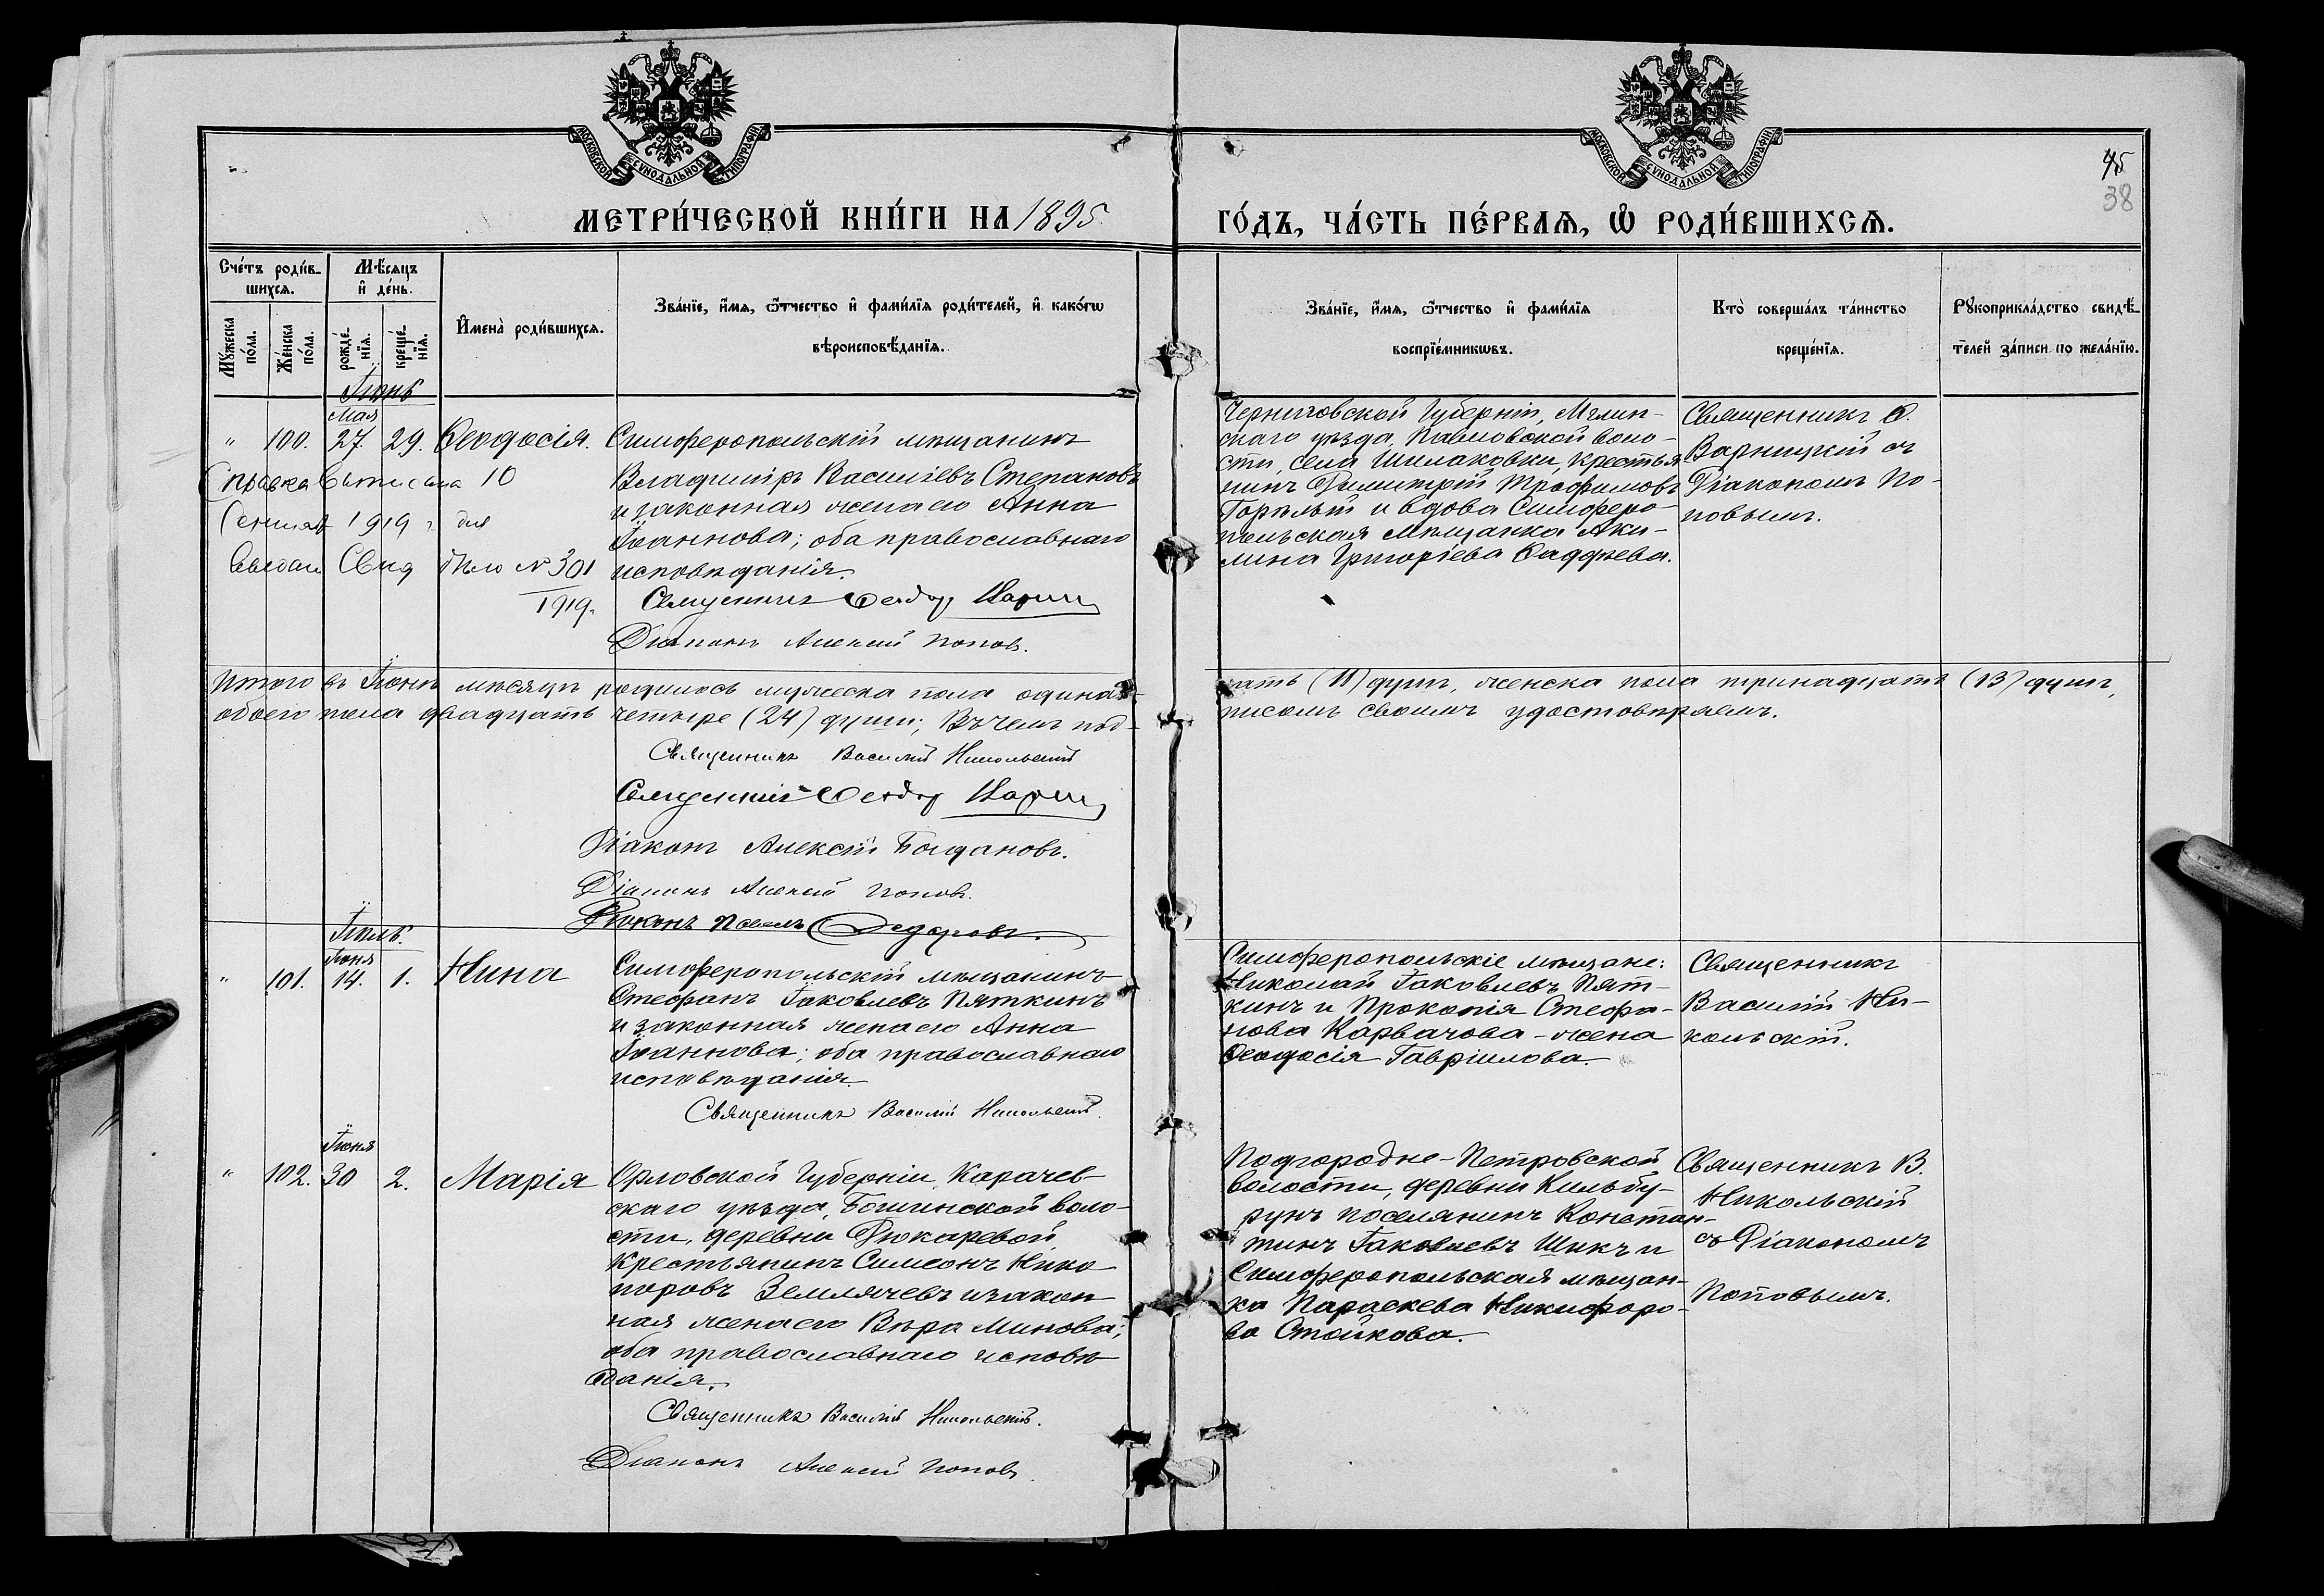 МОСКОВСКОЙ СѴНОДАЛЬНОЙ ТИПОГРАФІИ
МОСКОВСКОЙ СѴНОДАЛЬНОЙ ТИПОГРАФІИ
45
38
МЕТРИ́ЧЕСКОЙ КНИ́ГИ НА 1895 ГО́ДЪ, ЧА́СТЬ ПЕ́РВАѦ, Ѡ҆ РОДИ́ВШИХСѦ.
Сче́тъ роди́в-
шихсѧ.
Мꙋ́жеска по́ла.
Же́нска по́ла.
Мѣ́сѧцъ
и҆ де́нь.
рожде́-
нїѧ.
креще́-
нїѧ.
И҆мена̀ роди́вшихсѧ.
Зва́нїе, и҆́мѧ, ѻ҆́тчество и҆ фами́лїѧ роди́телей, и҆ како́гѡ
вѣроисповѣ́данїѧ.
Зва́нїе, и҆́мѧ, ѻ҆́тчество и҆ фами́лїѧ
воспрїе́мникѡвъ.
Кто̀ соверша́лъ та́инство
креще́нїѧ.
Рꙋкоприкла́дство свидѣ́-
телей за́писи по жела́нїю.
Іюнь
Мая
" 100. 27. 29. Ѳеодосія.
Симферопольскій мѣщанинъ
Владиміръ Василіевъ Степановъ
и законная жена его Анна
Іоаннова; оба православнаго
исповѣданія.
Священникъ Ѳеодор
Діаконъ Алексій Попов.
Справка 10
1919 г для
Свид дѣло № 301
1919.
Черниговской Губерніи, Мглин-
скаго уѣзда, Павловской воло-
сти, села Шилаковки, крестья
нинъ Димитрій Трофимовъ
Горѣлый и вдова Симферо-
польская Мѣщанка Аки-
лина Григоріева Ѳаддѣева.
Священникъ Ѳ.
Варницкій съ
Діакономъ По-
повымъ.
Итого въ Іюнѣ мѣсяцѣ родилось мужеска пола одинад- цать (11) душъ, женска пола тринадцать (13) душъ,
обоего пола двадцать четыре (24) души; Въ чемъ под- писомъ своимъ удостовѣряемъ.
Священникъ Василій Никольскій
Священникъ Ѳеодор
Діаконъ Алексій Богдановъ.
Діаконъ Алексій Попов.
Діаконъ Павелъ Ѳедоровъ.
Іюль.
Іюня
" 101. 14. 1. Нина
Симферопольскій мѣщанинъ
Стефанъ Іаковлевъ Пяткинъ
и законная жена его Анна
Іоаннова; оба православнаго
исповѣданія.
Священникъ Василій Никольскій.
Симферопольскіе мѣщане:
Николай Іаковлевъ Пят-
кинъ и Прокопія Стефа-
нова Карвачова - жена
Ѳеодосія Гавріилова.
Священникъ
Василій Ни-
кольскій.
Іюня
" 102. 30 2. Марія
Орловской Губерніи, Карачев-
скаго уѣзда, воло-
сти, деревни Дюкаревой
крестьянинъ Симеонъ Ники
форовъ Землячевъ и закон
ная жена его Вѣра Минова;
оба православнаго исповѣ
данія.
Священникъ Василій Никольскій.
Діаконъ Алексій Попов
Подгородне-Петровской
волости, деревни Кильбу-
рунъ поселянинъ Констан-
тинъ Іаковлевъ Шикъ и
Симферопольская мѣщан-
ка Параскева Никифоро-
ва Стойкова.
Священникъ В.
Никольскій
съ Діакономъ
Поповымъ.